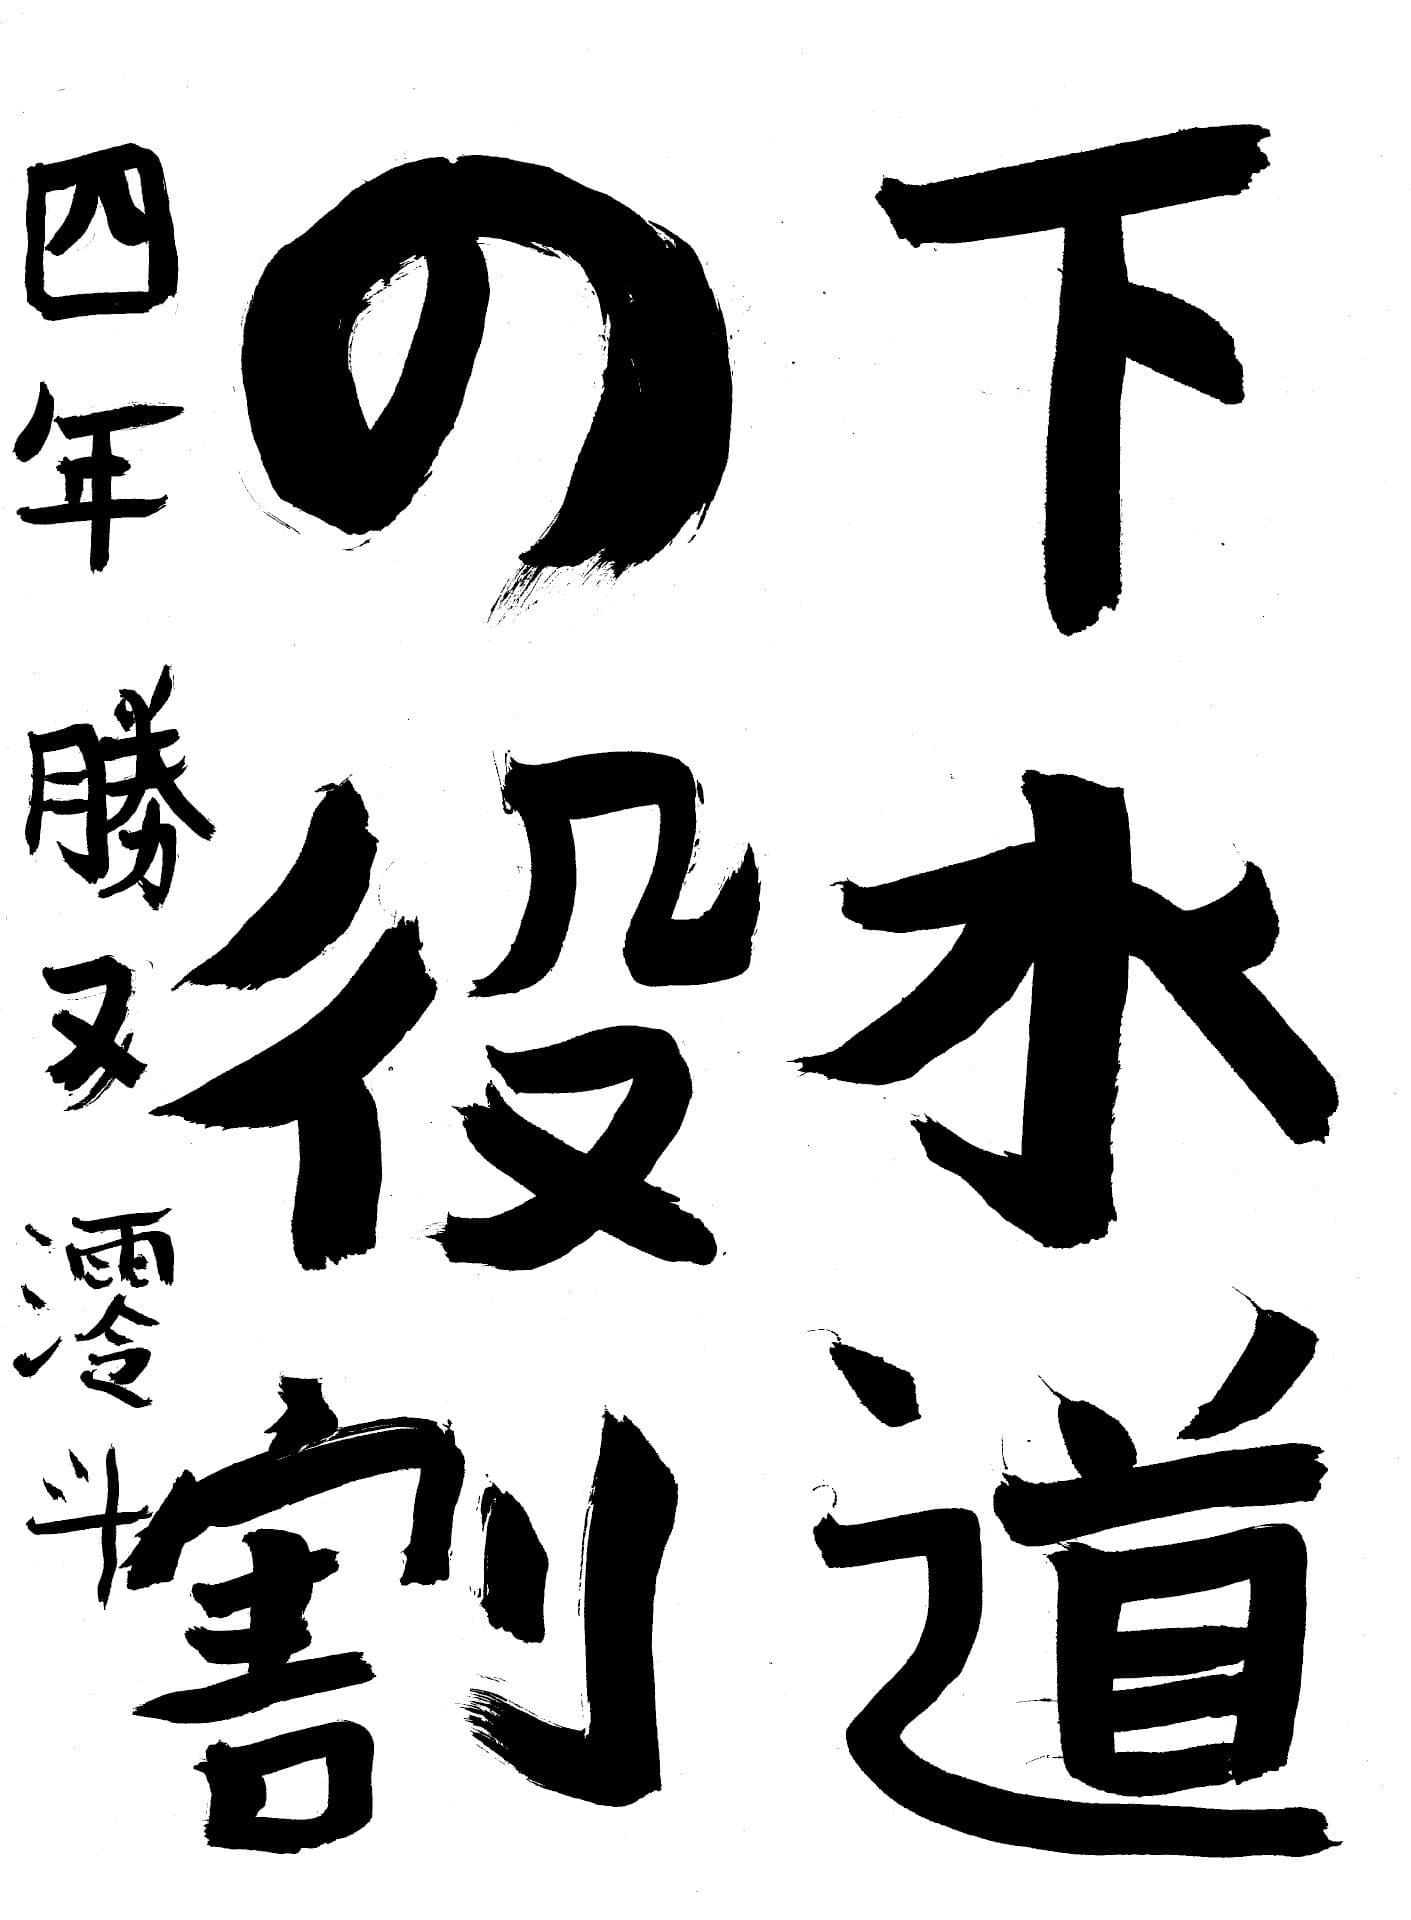 下水道
の役割
四年 勝又 澪斗